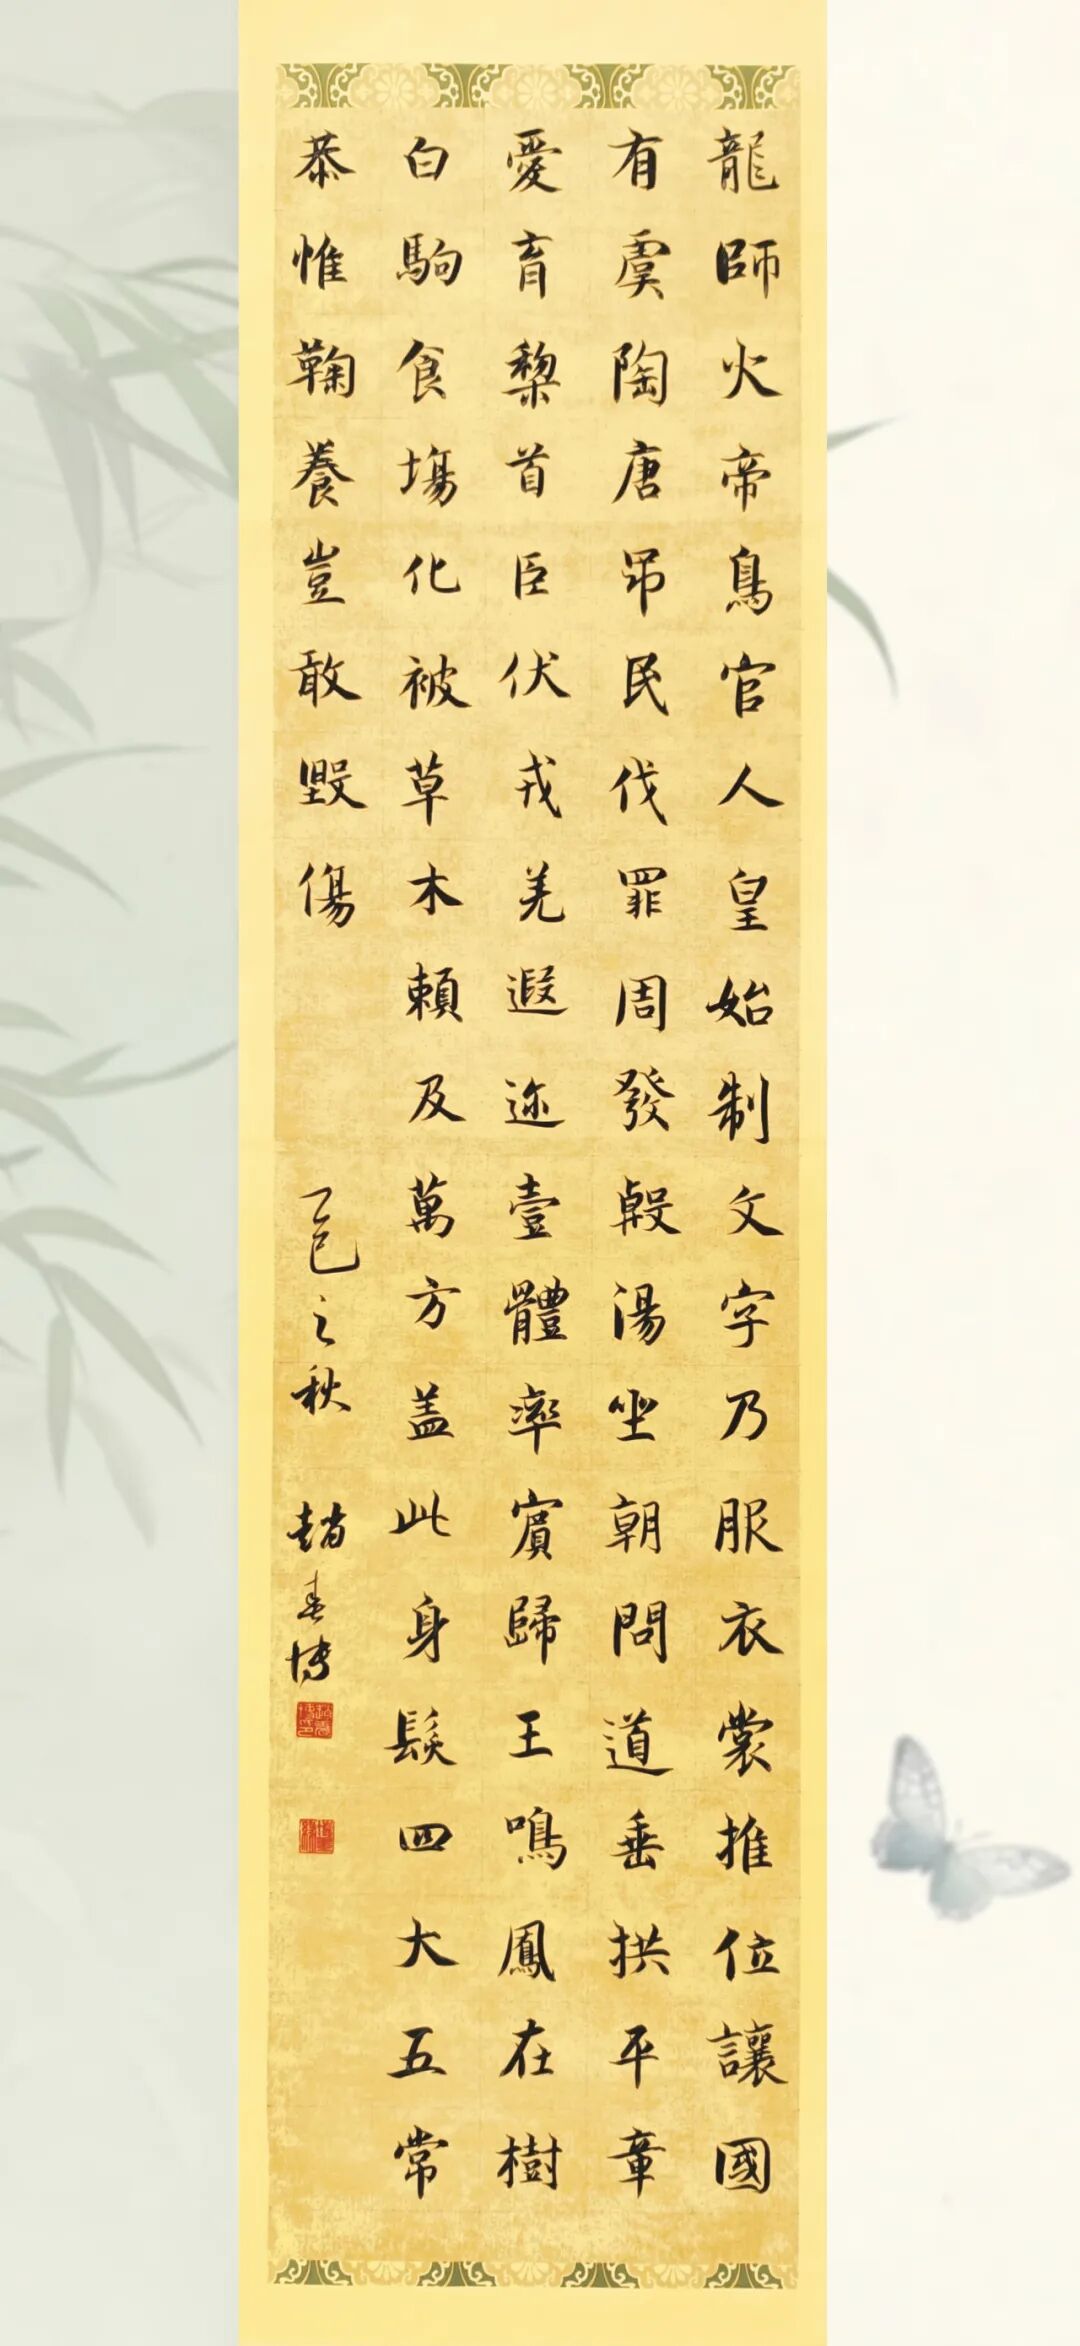 龍師火帝鳥官人皇始制文字乃服衣裳推位讓國
有虞陶唐弔民伐罪周發殷湯坐朝問道垂拱平章
愛育黎首臣伏戎羌遐迩壹體率賓歸王鳴鳳在樹
白駒食場化被草木賴及萬方盖此身髮四大五常
恭惟鞠養豈敢毀傷
乙巳之秋
趙春博